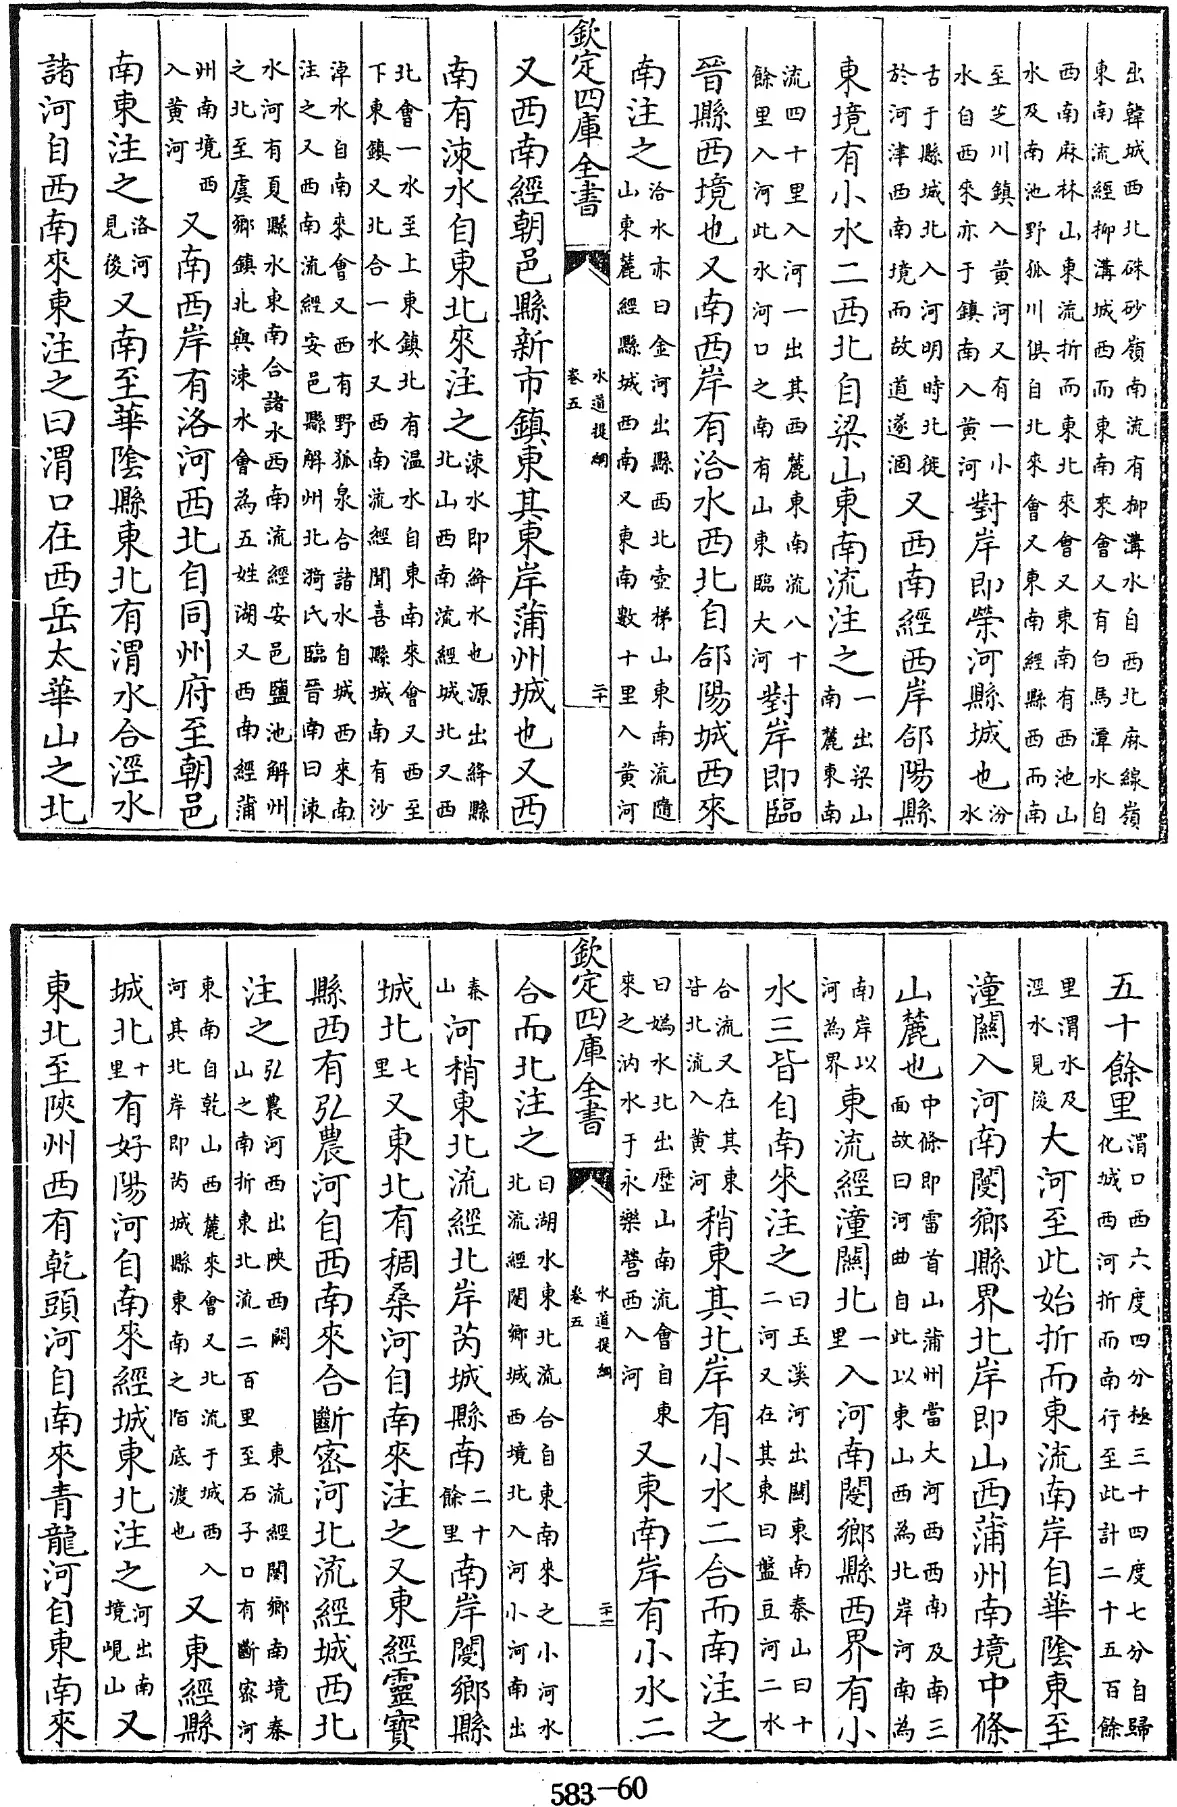 出韓城西北硃砂嶺南流有柳溝水自西北麻線嶺
東南流經柳溝城西而東南來會又有白馬潭水自
西南麻林山東流折而東北來會又東南有西池山
水及南池野狐川俱自北來會又東南經縣西而南
至芝川鎮入黄河又有一小水自西來亦于鎮南入黄河對岸即榮河縣城也汾水
古于縣城北入河明時北徙於河津西南境而故道遂涸又西南經西岸郃陽縣
東境有小水二西北自梁山東南流注之一出梁山南麓東南
流四十里入河一出其西麓東南流八十餘里入河此水河口之南有山東臨大河對岸即臨
晉縣西境也又南西岸有洽水西北自郃陽城西來
南注之洽水亦曰金河出縣西北壺梯山東南流隨山東麓經縣城西南又東南數十里入黄河
欽定四庫全書
水道提綱
卷五
二十
又西南經朝邑縣新市鎮東其東岸蒲州城也又西
南有涑水自東北來注之涑水即絳水也源出絳縣北山西南流經城北又西
北會一水至上東鎮北有温水自東南來會又西至
下東鎮又北合一水又西南流經聞喜縣城南有沙
淖水自南來會又西有野狐泉合諸水自城西來南
注之又西南流經安邑縣解州北猗氏臨晉南曰涑
水河有夏縣水東南合諸水西南流經安邑鹽池解州
之北至虞鄉鎮北與涑水會為五姓湖又西南經蒲
州南境西入黄河又南西岸有洛河西北自同州府至朝邑
南東注之洛河見後又南至華陰縣東北有渭水合涇水
諸河自西南來東注之曰渭口在西岳太華山之北
五十餘里渭口西六度四分極三十四度七分自歸化城西河折而南行至此計二十五百餘
里渭水及涇水見後大河至此始折而東流南岸自華陰東至
潼關入河南閿鄉縣界北岸即山西蒲州南境中條
山麓也中條即雷首山蒲州當大河西西南及南三面故曰河曲自此以東山西為北岸河南為
南岸以河為界東流經潼關北一里入河南閿鄉縣西界有小
水三皆自南來注之曰玉溪河出關東南秦山曰十二河又在其東曰盤豆河二水
合流又在其東皆北流入黄河稍東其北岸有小水二合而南注之
曰媯水北出歷山南流會自東來之汭水于永樂營西入河又東南岸有小水二
欽定四庫全書
水道提綱
卷五
二十一
合而北注之曰湖水東北流合自東南來之小河水北流經閿鄉城西境北入河小河南出
秦山河稍東北流經北岸芮城縣南二十餘里南岸閿鄉縣
城北七里又東北有稠桑河自南來注之又東經靈寶
縣西有弘農河自西南來合斷密河北流經城西北
注之弘農河西出陝西關山之南折東北流二百里至石子口有斷密河東流經閿鄉南境秦
東南自乾山西麓來會又北流于城西入河其北岸即芮城縣東南之陌底渡也又東經縣
城北十里有好陽河自南來經城東北注之河出南境峴山又
東北至陝州西有乾頭河自南來青龍河自東南來
583-60